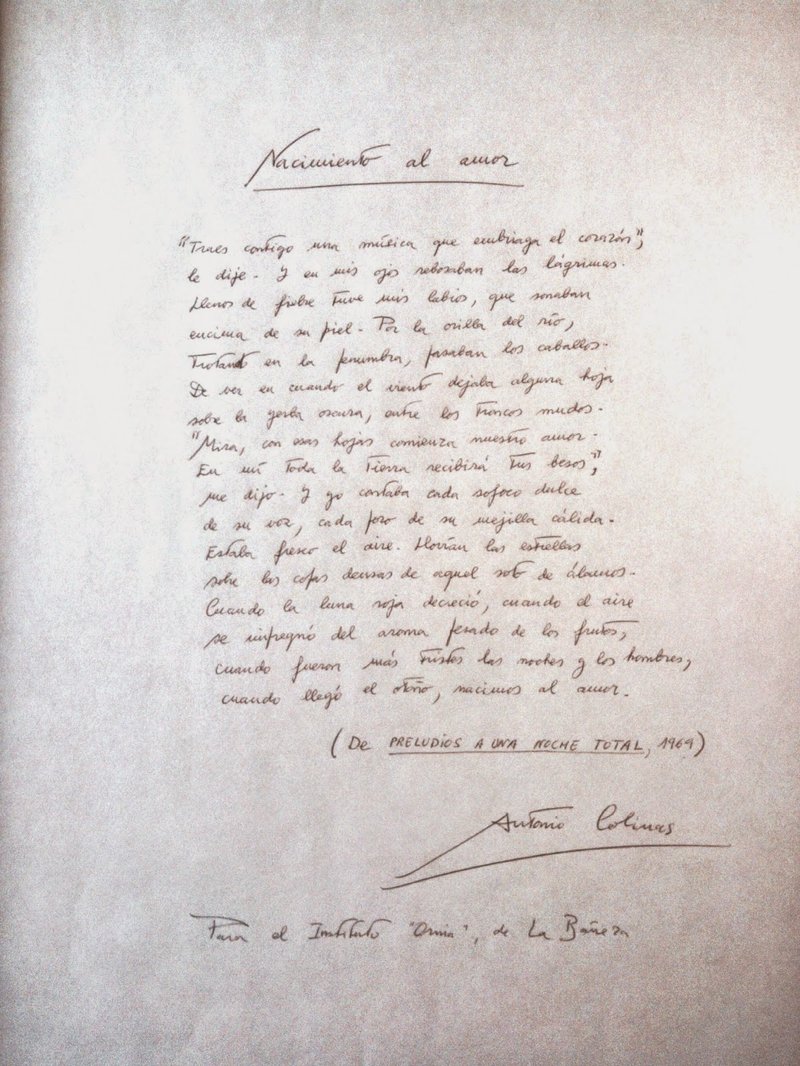 Nacimiento al amor
"Traes contigo una música que embriaga el corazón",
le dije. Y en mis ojos rebosaban las lágrimas.
Llenos de fiebre tuve mis labios, que sonaban
encima de su piel. Por la orilla del río,
trotando en la penumbra, pasaban los caballos.
De vez en cuando el viento dejaba alguna hoja
sobre la yerba oscura, entre los troncos mudos.
"Mira, con esas hojas comienza nuestro amor.
En mí toda la tierra recibirá tus besos",
me dijo. Y yo contaba cada sofoco dulce
de su voz, cada poro de su mejilla cálida.
Estaba fresco el aire. Llovían las estrellas
sobre las copas densas de aquel soto de álamos.
Cuando la luna roja decreció, cuando el aire
se impregnó del aroma pesado de los frutos,
cuando fueron más tristes las noches y los hombres,
cuando llegó el otoño, nacimos al amor.
(De PRELUDIOS A UNA NOCHE TOTAL, 1969)
Antonio Colinas
Para el Instituto "Ornia", de La Bañeza